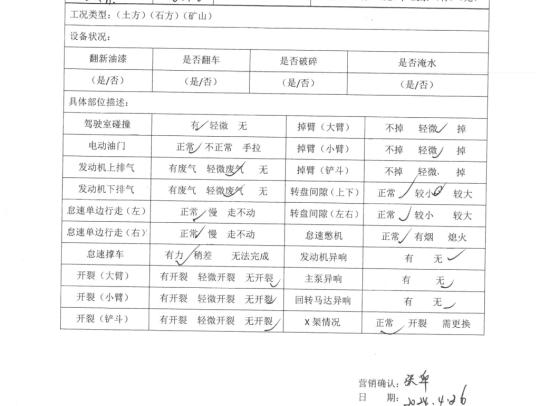 工况类型：（土方）（石方）（矿山）
设备状况：
翻新油漆 是否翻车 是否破碎 是否淹水
（是/否） （是/否） （是/否） （是/否）
具体部位描述：
驾驶室碰撞 有 轻微 无 掉臂（大臂） 不掉 轻微 掉
电动油门 正常 不正常 手拉 掉臂（小臂） 不掉 轻微 掉
发动机上排气 有废气 轻微废气 无 掉臂（铲斗） 不掉 轻微 掉
发动机下排气 有废气 轻微废气 无 转盘间隙（上下） 正常 较小 较大
怠速单边行走（左） 正常 慢 走不动 转盘间隙（左右） 正常 较小 较大
怠速单边行走（右） 正常 慢 走不动 怠速憋机 正常 有烟 熄火
怠速撑车 有力 稍差 无法完成 发动机异响 有 无
开裂（大臂） 有开裂 轻微开裂 无开裂 主泵异响 有 无
开裂（小臂） 有开裂 轻微开裂 无开裂 回转马达异响 有 无
开裂（铲斗） 有开裂 轻微开裂 无开裂 X架情况 正常 开裂 需更换
营销确认：
日 期：